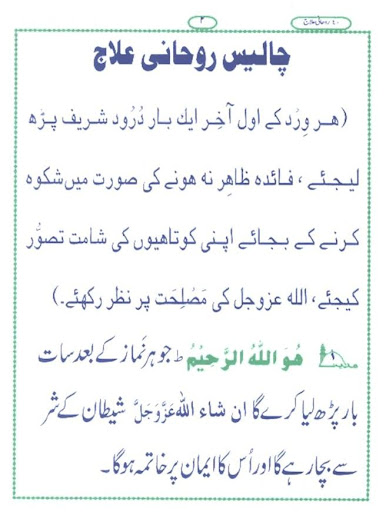 ۴۰ روحانی علاج
۲
چالیس روحانی علاج
(ہر وِرْد کے اول آخِر ایک بار دُرُود شریف پڑھ
لیجئے ، فائدہ ظاہِر نہ ہونے کی صورت میں شکوہ
کرنے کے بجائے اپنی کوتاہیوں کی شامت تصوُّر
کیجئے، اللہ عزوجل کی مَصْلِحَت پر نظر رکھئے۔)
۱ ھُوَ اللّٰہُ الرَّحِیْمُ ط جو ہر نَماز کے بعد سات
بار پڑھ لیا کرے گا ان شاء اللہ عَزَّوَجَلَّ شیطان کے شر
سے بچا رہے گا اور اُس کا ایمان پر خاتمہ ہوگا۔